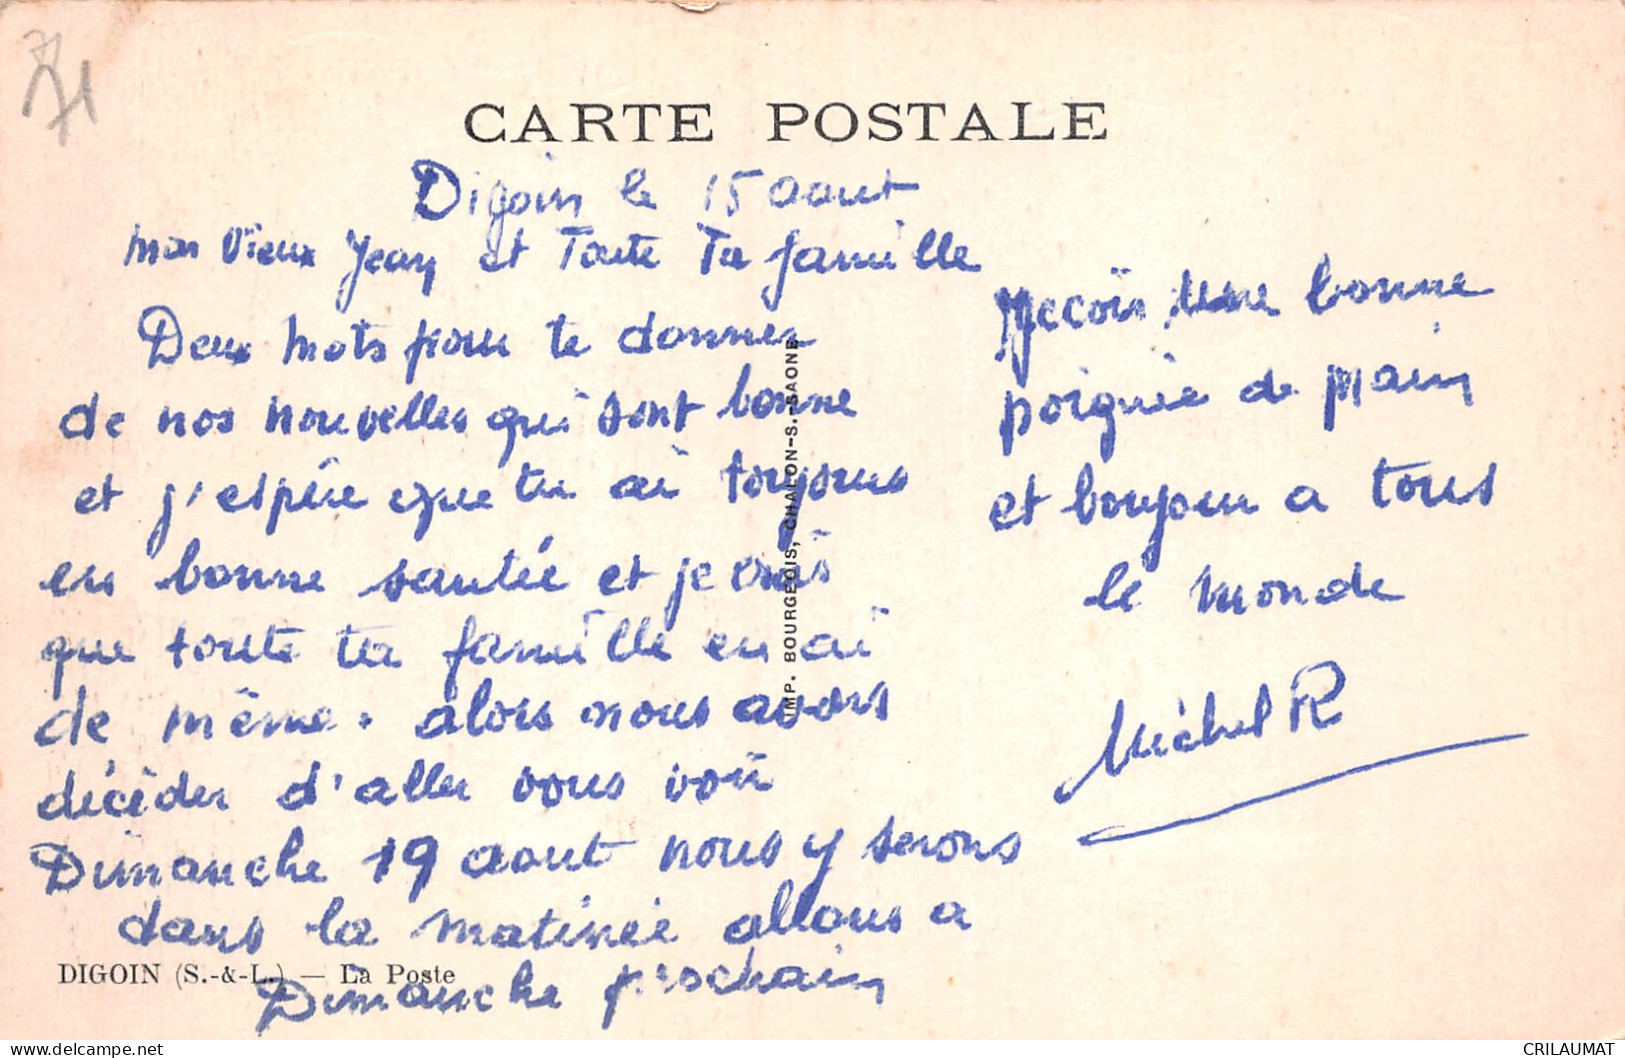 71
CARTE POSTALE
Digoin le 15 aout
mon vieux Jean et toute ta famille
Deux mots pour te donner
de nos nouvelles qui sont bonne
et j'espére que tu ai toujours
en bonne santée et je crois
que toute ta famille en ai
de même. alors nous avons
décider d'aller vous voir
Dimanche 19 aout nous y serons
dans la matinée allons a
Dimanche prochain
Reçois une bonne
poignée de main
et boujour a tous
le monde
Michel R
IMP. BOURGEOIS, CHALON-S.-SAONE
DIGOIN (S.-&-L.) — La Poste
delcampe.net
CRILAUMAT